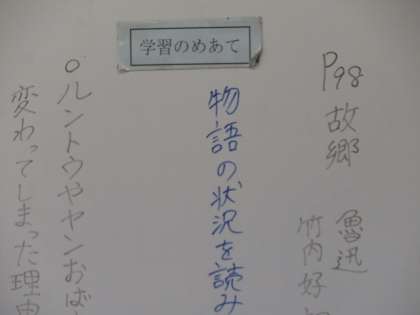 学習のめあて
P98 故郷
魯迅
竹内好
物語の状況を読み
○ルントウやヤンおば
変わってしまった理由